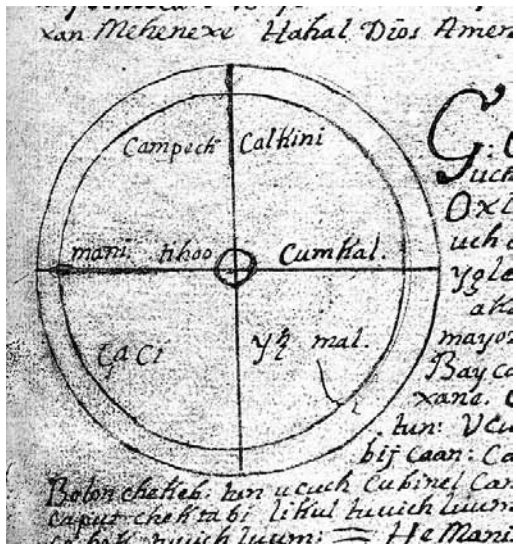 xan Mehenexe Hahal Dios Amen
Campech Calkini
mani. tihoo Cumkal.
mal.
G:
uch
Oxl
uch
ygle
aka
mayor
Bay ca
xane.
tun: Ucu
bij caan: Ca
Bolon chekeb: tun ucuch Cubinel Can
caput chek tabi likul tuuich luum
tuuich luum: = He Mani